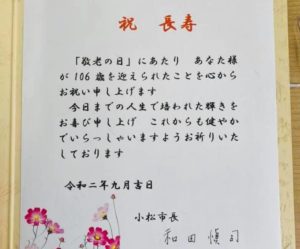 祝 長寿
「敬老の日」にあたり あなた様
が106歳を迎えられたことを心から
お祝い申し上げます
今日までの人生で培われた輝きを
お喜び申し上げ これからも健やか
でいらっしゃいますようお祈りいた
しております
令和二年九月吉日
小松市長
和田愼司